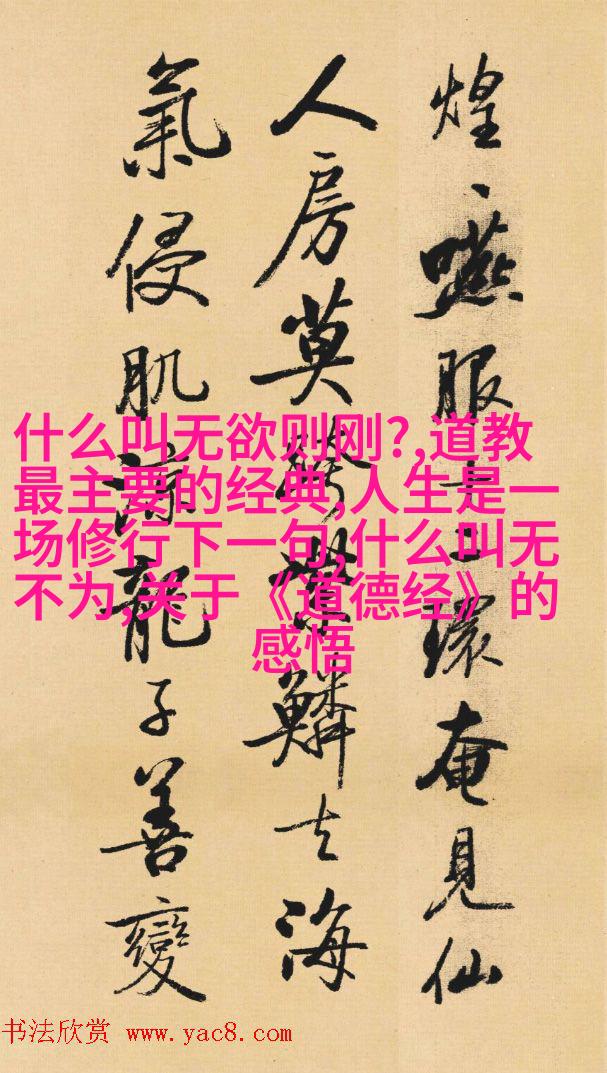 煌、嚥服十二環奄見仙
人房莫鱗去海
氣侵肌涼龍子善變
什么叫无欲则刚?,道教
最主要的经典,人生是一
场修行下一句,什么叫无
不为,关于《道德经》的
感悟
书法欣赏 www.yac8.com